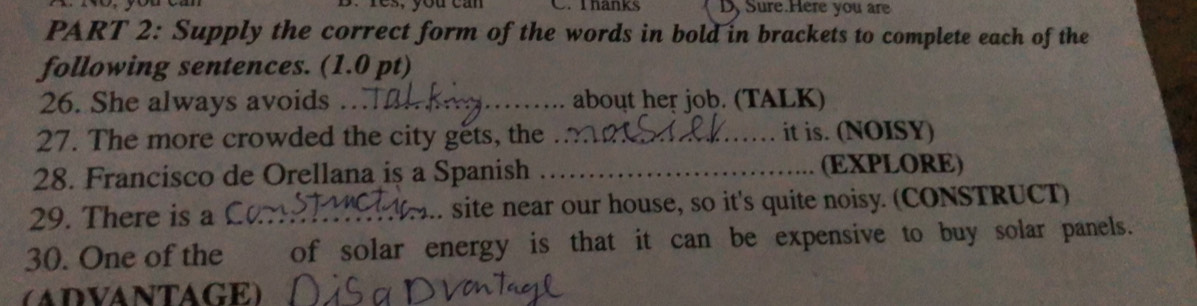 A. No, you can B. Yes, you can C. Thanks D. Sure.Here you are
PART 2: Supply the correct form of the words in bold in brackets to complete each of the
following sentences. (1.0 pt)
26. She always avoids ...Talking.......... about her job. (TALK)
27. The more crowded the city gets, the ..noisier...... it is. (NOISY)
28. Francisco de Orellana is a Spanish ................................ (EXPLORE)
29. There is a Construction.. site near our house, so it's quite noisy. (CONSTRUCT)
30. One of the of solar energy is that it can be expensive to buy solar panels.
(ADVANTAGE) DisaDvantage